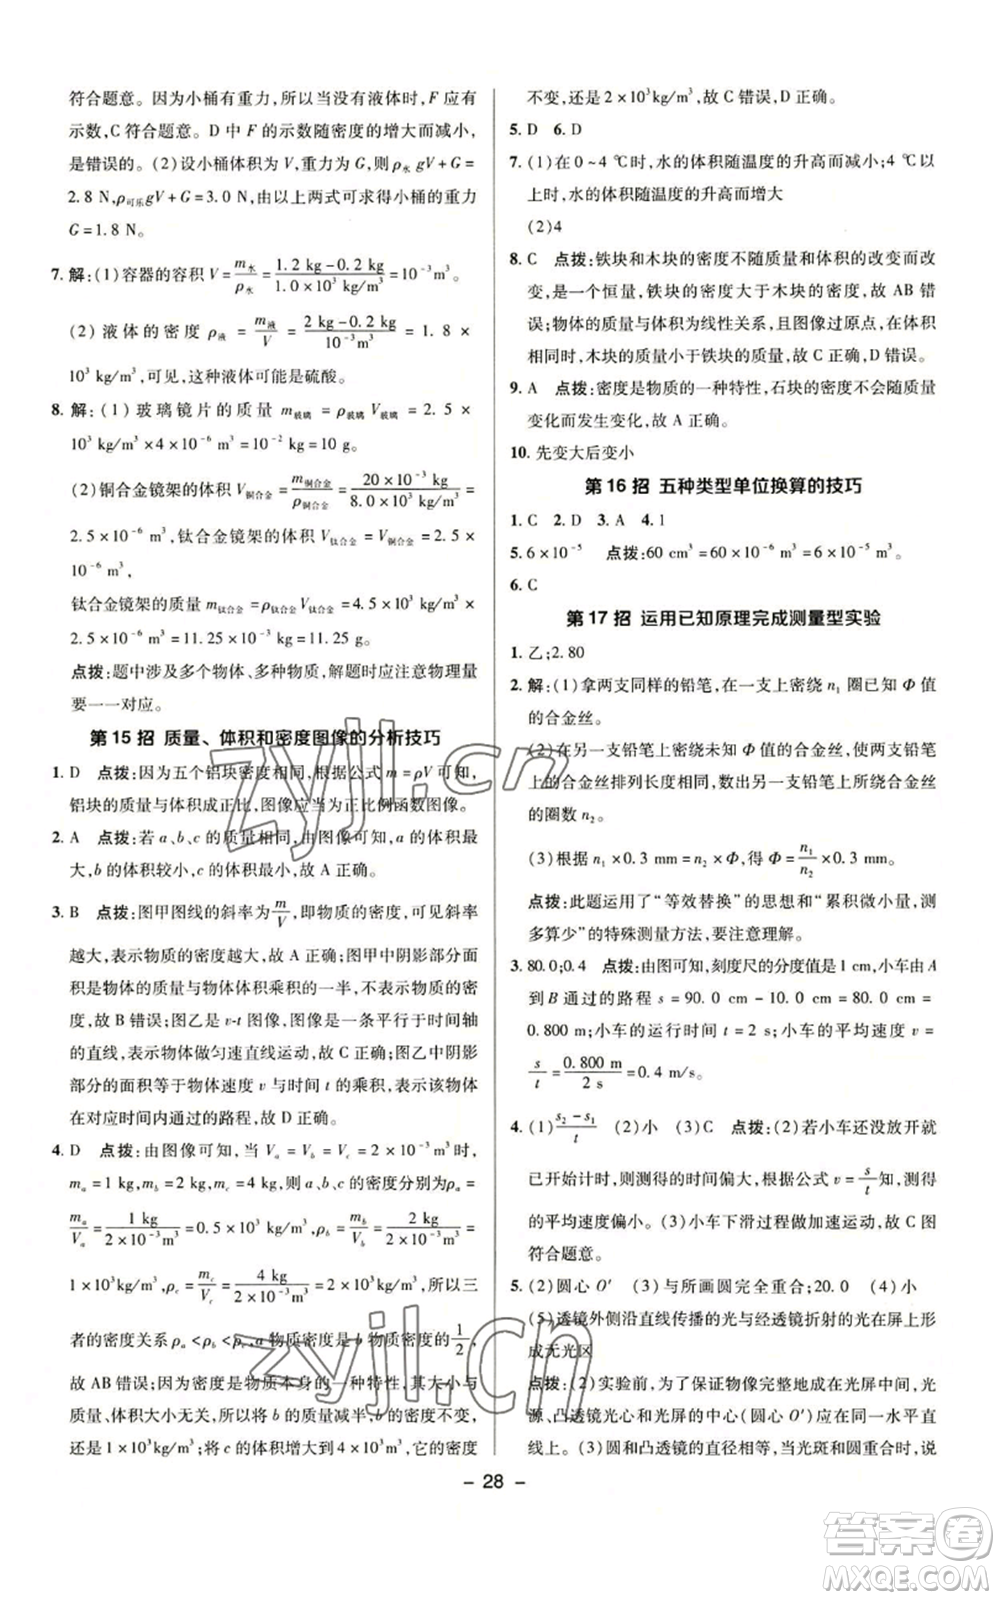 符合题意。因为小桶有重力,所以当没有液体时,F 应有
示数,C 符合题意。D 中 F 的示数随密度的增大而减小,
是错误的。(2)设小桶体积为 V,重力为 G,则ρ水 gV + G =
2.8 N,ρ可乐 gV + G = 3.0 N,由以上两式可求得小桶的重力
G = 1.8 N。
7. 解:(1)容器的容积 V = m水/ρ水 = (1.2 kg - 0.2 kg)/(1.0 × 10³ kg/m³) = 10⁻³ m³
(2) 液体的密度 ρ液 = m液/V = (2 kg - 0.2 kg)/(10⁻³ m³) = 1.8 ×
10³ kg/m³,可见,这种液体可能是硫酸。
8. 解:(1) 玻璃镜片的质量 m玻璃 = ρ玻璃 V玻璃 = 2.5 ×
10³ kg/m³ × 4 × 10⁻⁶ m³ = 10⁻² kg = 10 g。
(2)铜合金镜架的体积 V铜合金 = m铜合金/ρ铜合金 = (20 × 10⁻³ kg)/(8.0 × 10³ kg/m³) =
2.5 × 10⁻⁶ m³,钛合金镜架的体积 V钛合金 = V铜合金 = 2.5 ×
10⁻⁶ m³,
钛合金镜架的质量 m钛合金 = ρ钛合金 V钛合金 = 4.5 × 10³ kg/m³ ×
2.5 × 10⁻⁶ m³ = 11.25 × 10⁻³ kg = 11.25 g。
点拨:题中涉及多个物体、多种物质,解题时应注意物理量
要一一对应。
第 15 招 质量、体积和密度图像的分析技巧
1. D 点拨:因为五个铝块密度相同,根据公式 m = ρV 可知,
铝块的质量与体积成正比,图像应当为正比例函数图像。
2. A 点拨:若 a、b、c 的质量相同,由图像可知,a 的体积最
大,b 的体积较小,c 的体积最小。
3. B 点拨:图甲图线的斜率为 m/V,即物质的密度,可见斜率
越大,表示物质的密度越大,故 A 正确;图甲中阴影部分
面积是物体的质量与体积乘积的一半,不表示物质的密
度,故 B 错误;图乙是 v-t 图像,图像是一条平行于时间轴
的直线,表示物体做匀速直线运动,故 C 正确;图乙中阴影
部分的面积等于物体速度 v 与时间 t 的乘积,表示该物体
在对应时间内通过的路程,故 D 正确。
4. D 点拨:由图像可知,当 Va = Vb = Vc = 2 × 10⁻³ m³ 时,
ma = 1 kg,mb = 2 kg,mc = 4 kg,则 a、b、c 的密度分别为ρa =
ma/Va = 1 kg/(2 × 10⁻³ m³) = 0.5 × 10³ kg/m³,ρb = mb/Vb = 2 kg/(2 × 10⁻³ m³) =
1 × 10³ kg/m³,ρc = mc/Vc = 4 kg/(2 × 10⁻³ m³) = 2 × 10³ kg/m³,所以三
者的密度关系 ρa < ρb < ρc,a 物质密度是 b 物质密度的 1/2,
故 AB 错误;因为密度是物质本身的一种特性,其大小与
质量、体积大小无关,所以将 b 的质量减半,b 的密度不变,
还是 1 × 10³ kg/m³;将 c 的体积增大到 4 × 10⁻³ m³,它的密度
不变,还是 2 × 10³ kg/m³,故 C 错误,D 正确。
5. D 6. D
7. (1)在 0 ~ 4 ℃时,水的体积随温度的升高而减小;4 ℃以
上时,水的体积随温度的升高而增大
(2)4
8. C 点拨:铁块和木块的密度不随质量和体积的改变而改
变,是一个恒量,铁块的密度大于木块的密度,故 AB 错
误;物体的质量与体积为线性关系,且图像过原点,在体积
相同时,木块的质量小于铁块的质量,故 C 正确,D 错误。
9. A 点拨:密度是物质的一种特性,石块的密度不会随质量
变化而发生变化,故 A 正确。
10. 先变大后变小
第 16 招 五种类型单位换算的技巧
1. C 2. D 3. A 4. 1
5. 6 × 10⁻⁵ 点拨:60 cm³ = 60 × 10⁻⁶ m³ = 6 × 10⁻⁵ m³。
6. C
第 17 招 运用已知原理完成测量型实验
1. 乙;2.80
2. 解:(1)拿两支同样的铅笔,在一支上密绕 n₁ 圈已知 Φ 值
的合金丝。
(2)在另一支铅笔上密绕未知 Φ 值的合金丝,使两支铅笔
上的合金丝排列长度相等,数出另一支铅笔上所绕合金丝
的圈数 n₂。
(3)根据 n₁ × 0.3 mm = n₂ × Φ,得 Φ = n₁/n₂ × 0.3 mm。
点拨:此题运用了“等效替换”的思想和“累积微小量,测
多算少”的特殊测量方法,要注意理解。
3. 80.0;0.4 点拨:由图可知,刻度尺的分度值是 1 cm,小车由 A
到 B 通过的路程 s = 90.0 cm - 10.0 cm = 80.0 cm =
0.800 m;小车的运行时间 t = 2 s;小车的平均速度 v =
s/t = 0.800 m/2 s = 0.4 m/s。
4. (1) (s₂ - s₁)/t (2)小 (3)C 点拨:(2)若小车还没放开就
已开始计时,则测得的时间偏大,根据公式 v = s/t 知,测得
的平均速度偏小。(3)小车下滑过程做加速运动,故 C 图
符合题意。
5. (2)圆心 O′ (3)与所画圆完全重合;20.0 (4)小
(5)透镜外侧沿直线传播的光与经透镜折射的光在屏上形
成无光区
点拨:(2)实验前,为了保证物像完整地成在光屏中间,光
源、凸透镜光心和光屏的中心(圆心 O′)应该在一水平直
线上。(3)圆和凸透镜的直径相等,当光斑和圆重合时,说
- 28 -
zyjl.cn
zyjl.cn
答案卷
MXQE.COM